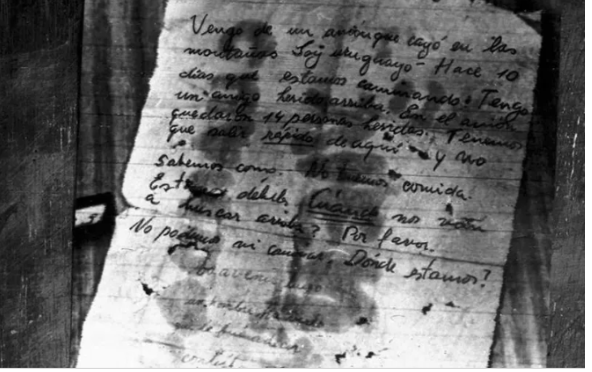 Vengo de un avión que cayó en las
montañas Soy uruguayo. Hace 10
días que estamos caminando. Tengo
un amigo herido arriba. En el avión
quedaron 14 personas heridas. Tenemos
que salir rápido de aquí y no
sabemos como. No tenemos comida.
Estamos debiles Cuándo nos van
a buscar arriba? Por favor.
No podemos ni caminar. Dónde estamos?